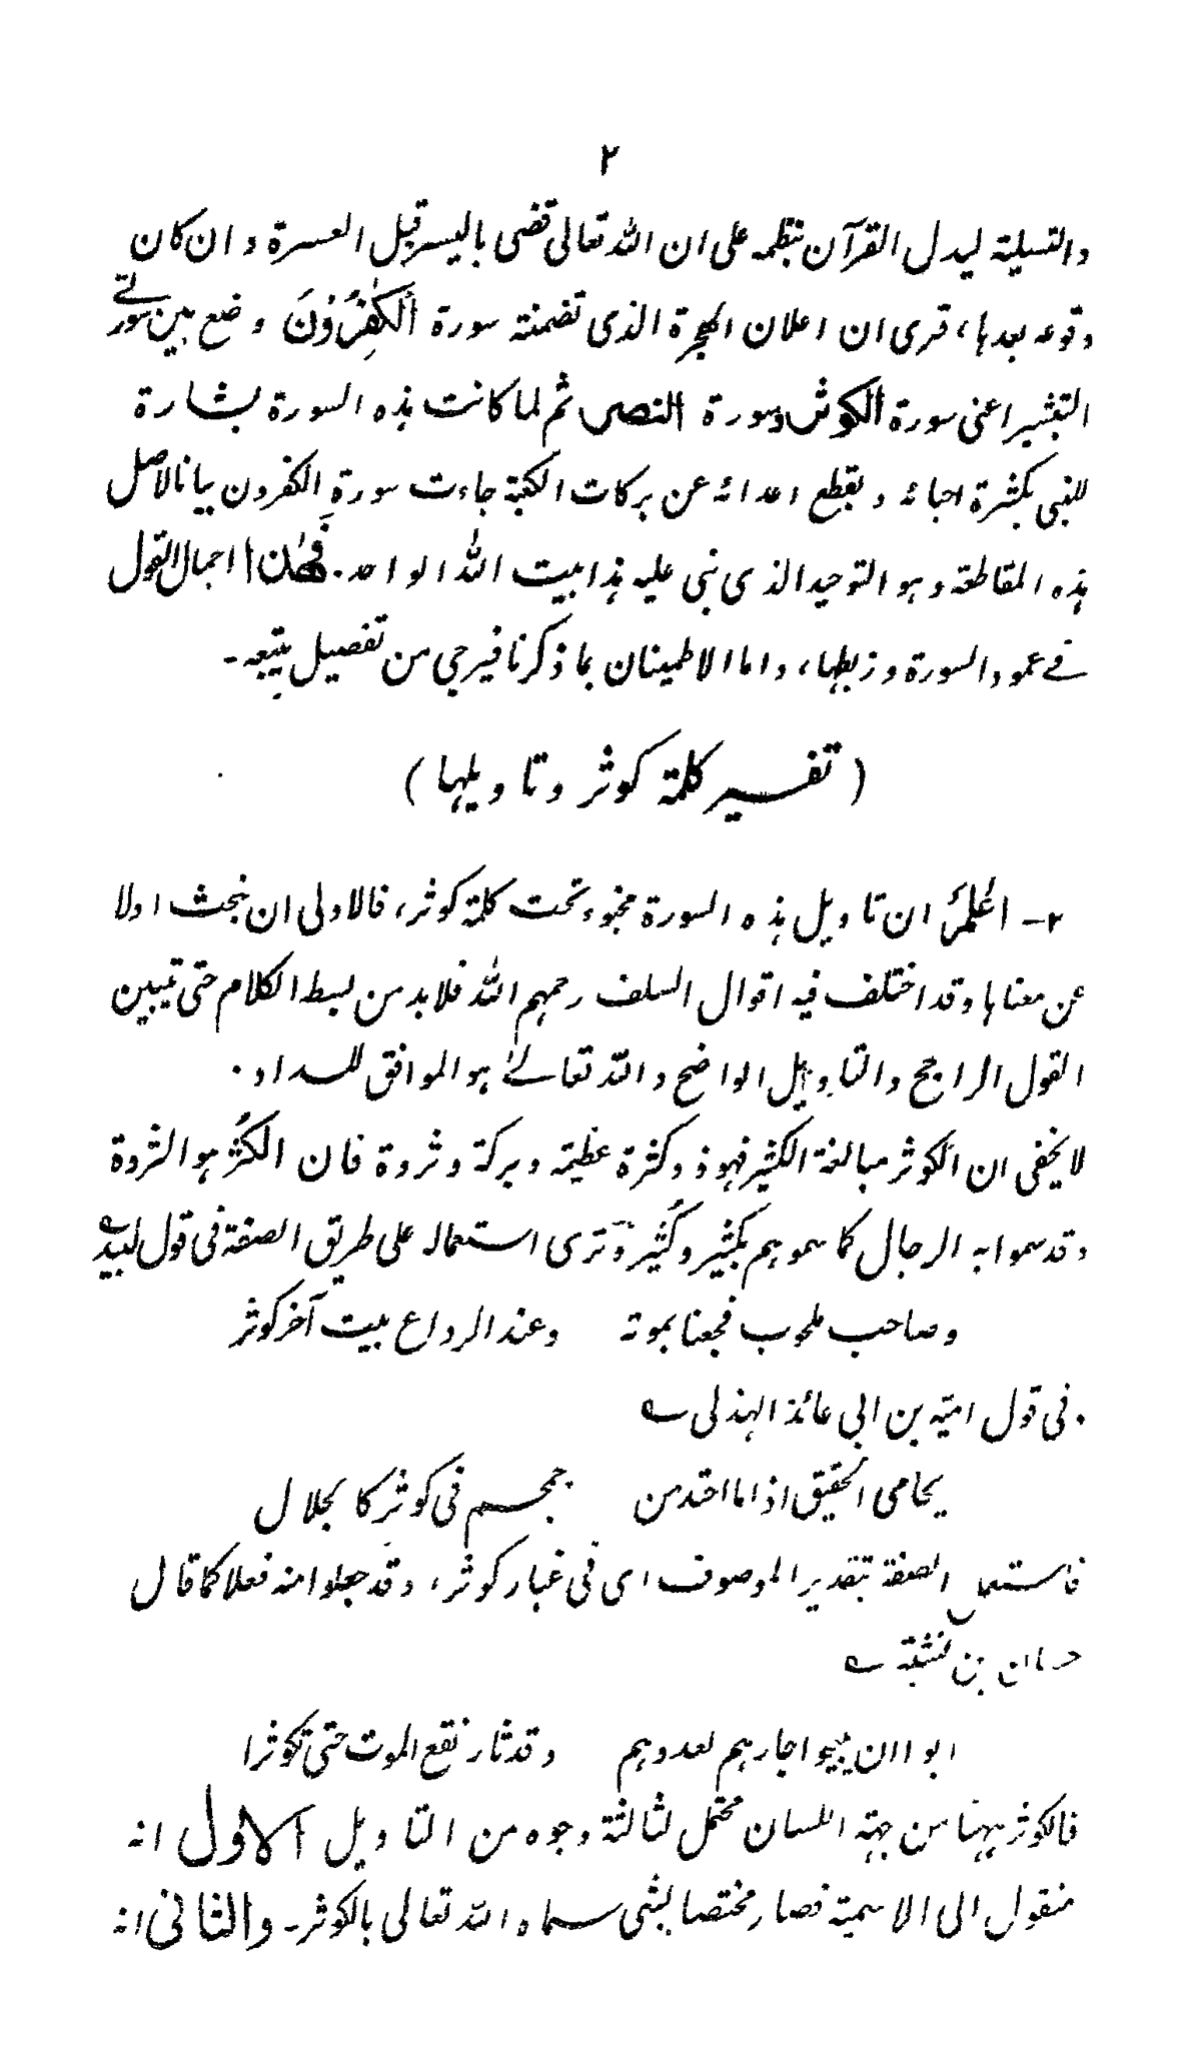 ٢
والتسلية ليدل القرآن بنظمه على ان الله تعالى قضى باليسر قبل العسرة وان كان
وقوعه بعدها، فترى ان اعلان الهجرة الذى تضمنته سورة الْكٰفِرُوْنَ وضع بين سورتے
التبشير اعنى سورة الكوثر وسورة النصر ثم لما كانت هذه السورة بشارة
للنبى بكثرة احبائه وبقطع اعدائه عن بركات الكعبة جاءت سورة الكفرون بيانا لاصل
هذه المقاطعة وهو التوحيد الذى بنى عليه هذا بيت الله الواحد. فهٰذا اجمال القول
فے عمود السورة وربطها، واما الاطمينان بما ذكرنا فيرجى من تفصيل يتبعه ـ
(تفسير كلمة كوثر وتاويلها)
٢ـ اعلم ان تاويل هذه السورة مخبوء تحت كلمة كوثر، فالاولى ان نبحث اولا
عن معناها وقد اختلف فيه اقوال السلف رحمهم الله فلا بد من بسط الكلام حتى تبين
القول الراجح والتاويل الواضح والله تعالےٰ هو الموافق للسداد.
لا يخفى ان الكوثر مبالغة الكثير فهو ذو كثرة عظيمة وبركة وثروة فان الكُثْر هو الثروة
وقد سموا به الرجال كما سموهم بكثير وكُثَيِّر وترى استعماله على طريق الصفة فى قول لبيد ؎
وصاحب ملحوب فجعنا بموته وعند الرداع بيت آخر كوثر
. فى قول امية بن ابى عائذ الهذلى ؎
يحامى الحقيق اذا ما احتدمن جمحم فى كوثر كالجلال
فاستعمل الصفة بتقدير الموصوف اى فى غبار كوثر، وقد جعلوا منه فعلا كما قال
حسان بن نشبة ؎
ابوا ان يبيحوا جارهم لعدوهم وقد ثار نقع الموت حتى تكوثرا
فالكوثر ههنا من جهة اللسان محتمل لثالثة وجوه من التاويل الاول انه
منقول الى الاسمية فصار مختصا بشى سماه الله تعالى بالكوثر ـ والثانى انه